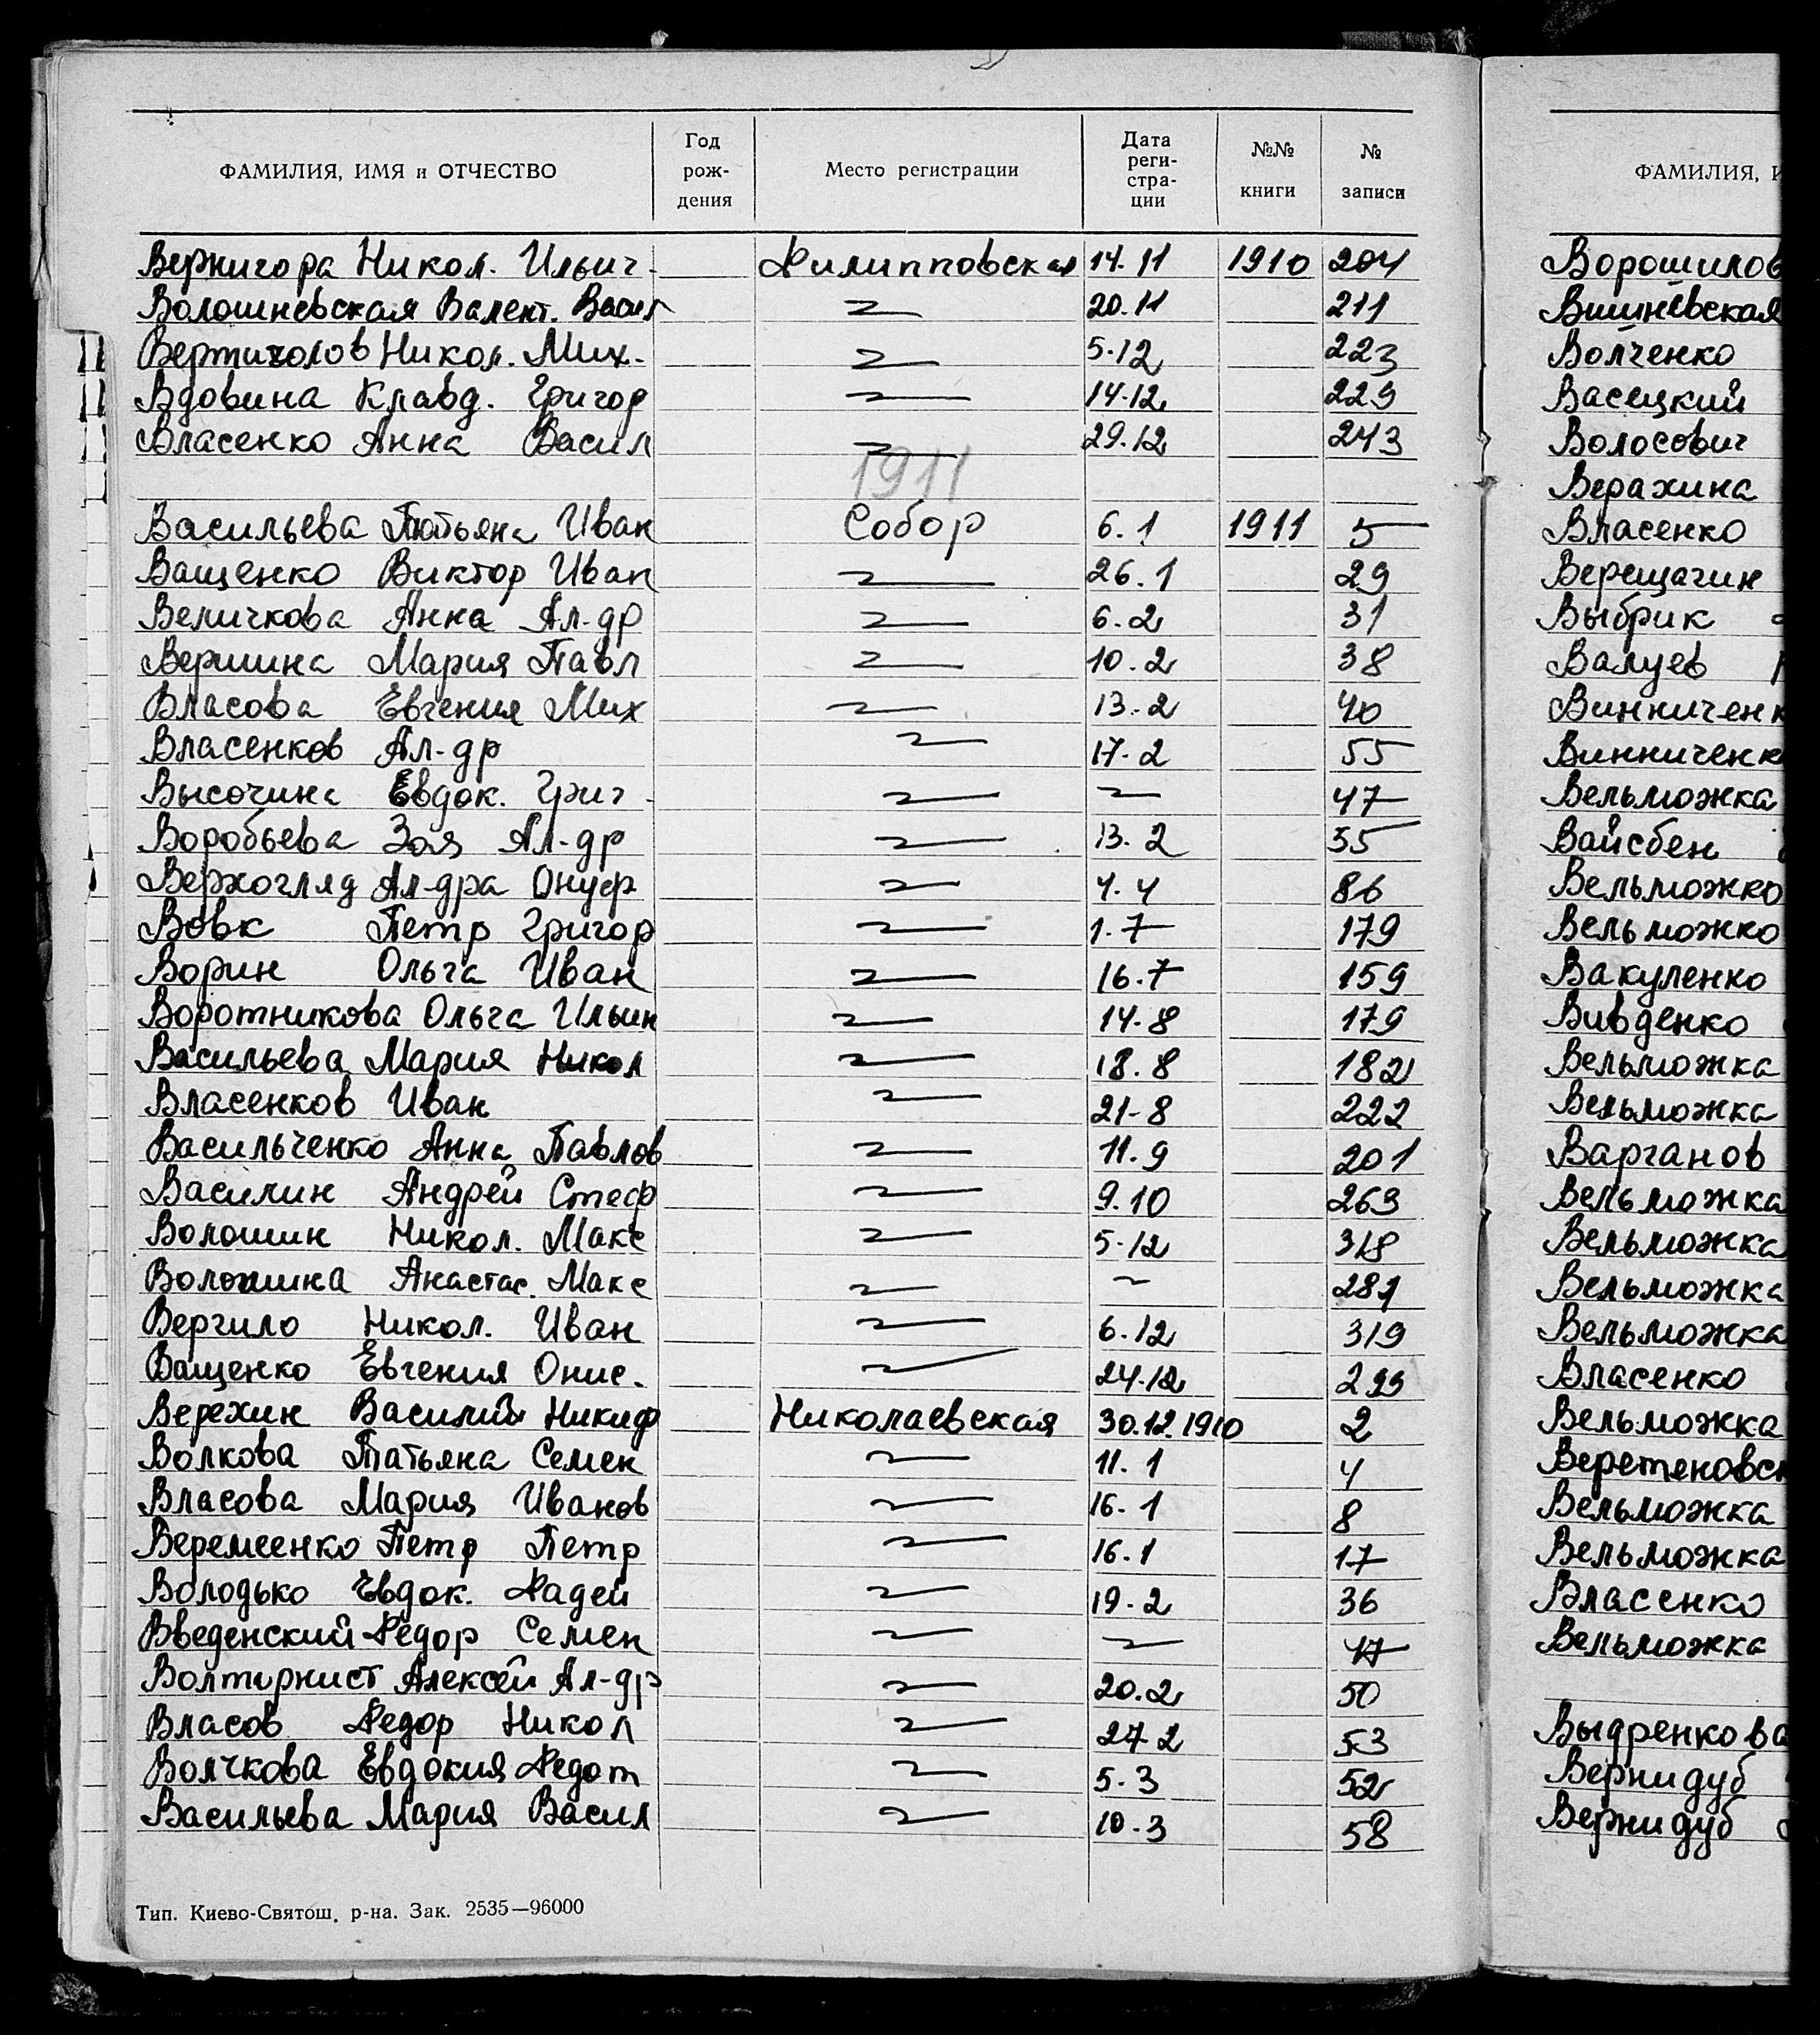 ФАМИЛИЯ, ИМЯ и ОТЧЕСТВО Год рож- дения Место регистрации Дата реги- стра- ции №№ книги № записи
Вернигора Никол. Ильич. Филипповская 14.11 1910 204
Волошневская Валент. Васил 20.11 211
Вертиголов Никол. Мих. 5.12 223
Вдовина Клавд. Григор 14.12 229
Власенко Анна Васил 29.12 243
1911
Васильева Татьяна Иван Собор 6.1 1911 5
Ващенко Виктор Иван 26.1 29
Величкова Анна Ал-др 6.2 31
Вершина Мария Павл 10.2 38
Власова Евгения Мих 13.2 40
Власенков Ал-др 17.2 55
Высочина Евдок. Григ. 47
Воробьева Зоя Ал-др 13.2 55
Верхогляд Ал-дра Онуф 4.4 86
Вовк Петр Григор 1.7 179
Ворин Ольга Иван 16.7 159
Воротникова Ольга Ильин 14.8 179
Васильева Мария Никол 18.8 182
Власенков Иван 21-8 222
Васильченко Анна Павлов 11.9 201
Василин Андрей Стеф 9.10 263
Волошин Никол. Макс 5.12 318
Волошина Анастас. Макс 281
Вергило Никол. Иван 6.12 319
Ващенко Евгения Онис. 24.12 299
Верехин Василий Никиф Николаевская 30.12.1910 2
Волкова Татьяна Семен 11.1 4
Власова Мария Иванов 16.1 8
Веремеенко Петр Петр 16.1 17
Володько Евдок. Фадей 19.2 36
Введенский Федор Семен 47
Волтирнист Алексей Ал-др 20.2 50
Власов Федор Никол 27 2 53
Волчкова Евдокия Федот 5.3 52
Васильева Мария Васил 10.3 58
Тип. Киево-Святош. р-на. Зак. 2535—96000
ФАМИЛИЯ, И
Ворошилов
Вишневская
Волченко
Васецкий
Волосович
Верахина
Власенко
Верещагин
Выбрик
Валуев
Винниченк
Винниченк
Вельможка
Вайсбен
Вельможко
Вельможко
Вакуленко
Вивденко
Вельможка
Вельможка
Варганов
Вельможка
Вельможка
Вельможка
Вельможка
Власенко
Вельможка
Веретеновск
Вельможка
Вельможка
Власенко
Вельможка
Выдренкова
Вернидуб
Вернидуб